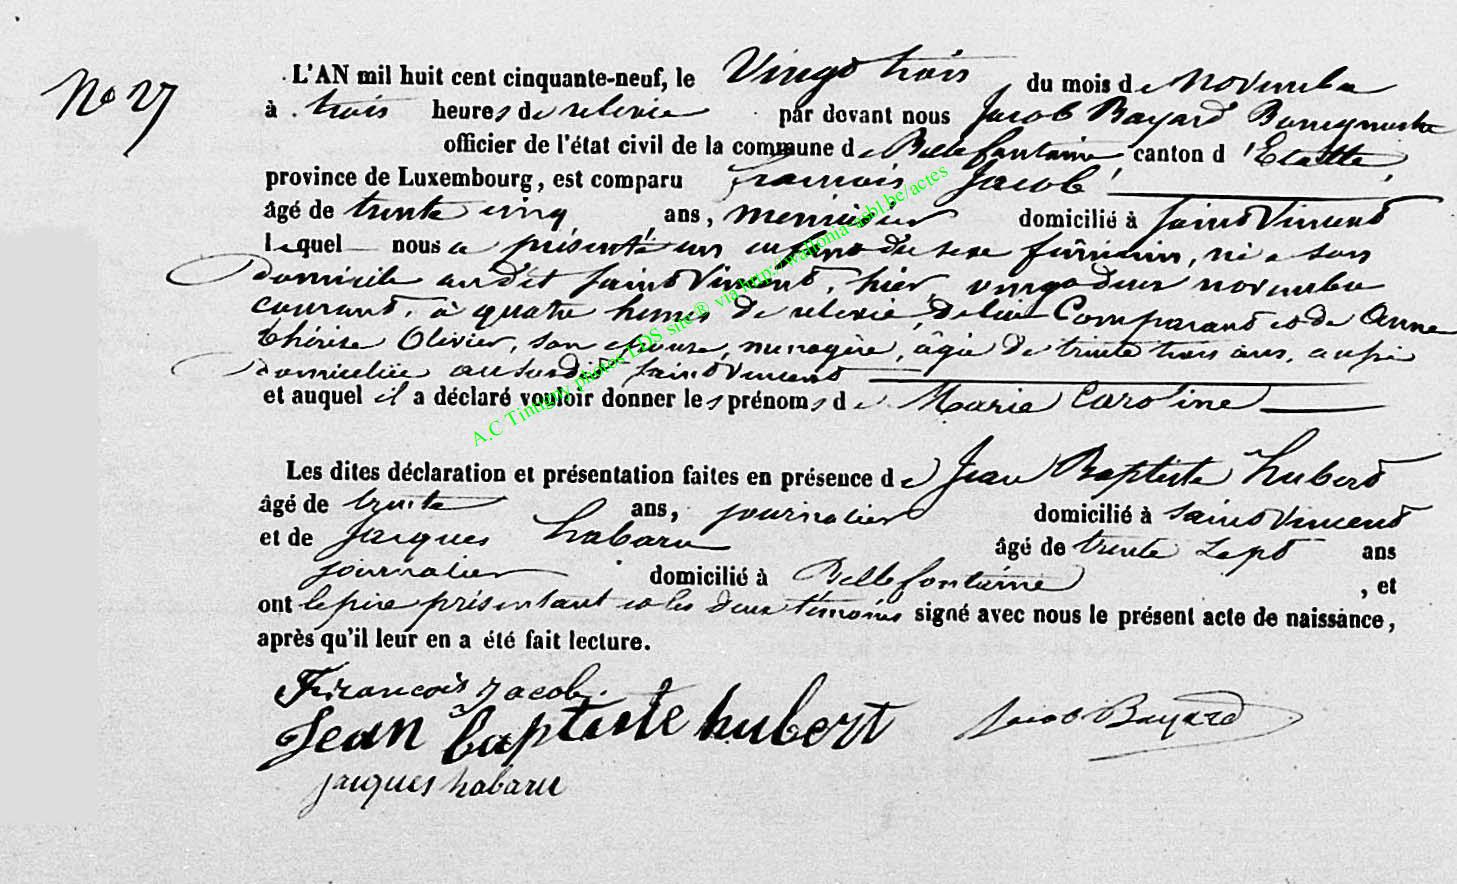 No 27
L'AN mil huit cent cinquante-neuf, le Vingt trois du mois de Novembre
à trois heures de relevée par devant nous Jacob Bayard Bourgmestre
officier de l'état civil de la commune de Bellefontaine canton d'Etalle,
province de Luxembourg, est comparu François Jacob,
âgé de trente cinq ans, menuisier domicilié à Saint Vincent
lequel nous a présenté un enfant du sexe féminin, né a son
domicile audit Saint Vincent, hier vingt deux novembre
courant, à quatre heures de relevée, de lui Comparant et de Anne
thérèse Olivier, son épouse, menagère, âgée de trente trois ans, aussi
domiciliée au susdit Saint Vincent
et auquel il a déclaré vouloir donner les prénoms de Marie Caroline
Les dites déclaration et présentation faites en présence de Jean Baptiste hubert
âgé de trente ans, journalier domicilié à Saint Vincent
et de Jacques habaru âgé de trente sept ans
journalier domicilié à Bellefontaine, et
ont le père présentant et les deux témoins signé avec nous le présent acte de naissance,
après qu'il leur en a été fait lecture.
François Jacob.
Jean baptiste hubert
Jacob Bayard
jacques habaru
A.C Tintigny photos LDS site ® via http://wallonia-asbl.be/actes